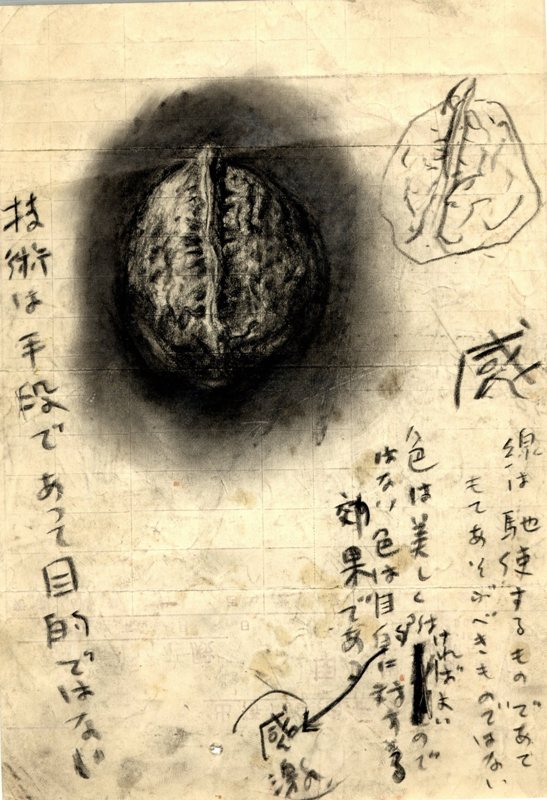 感
線は馳使するものであて
もてあそぶべきものではない
色は美しく附ければよいので
はない色は目的に対する
効果である
感激
技術は手段であって目的ではない